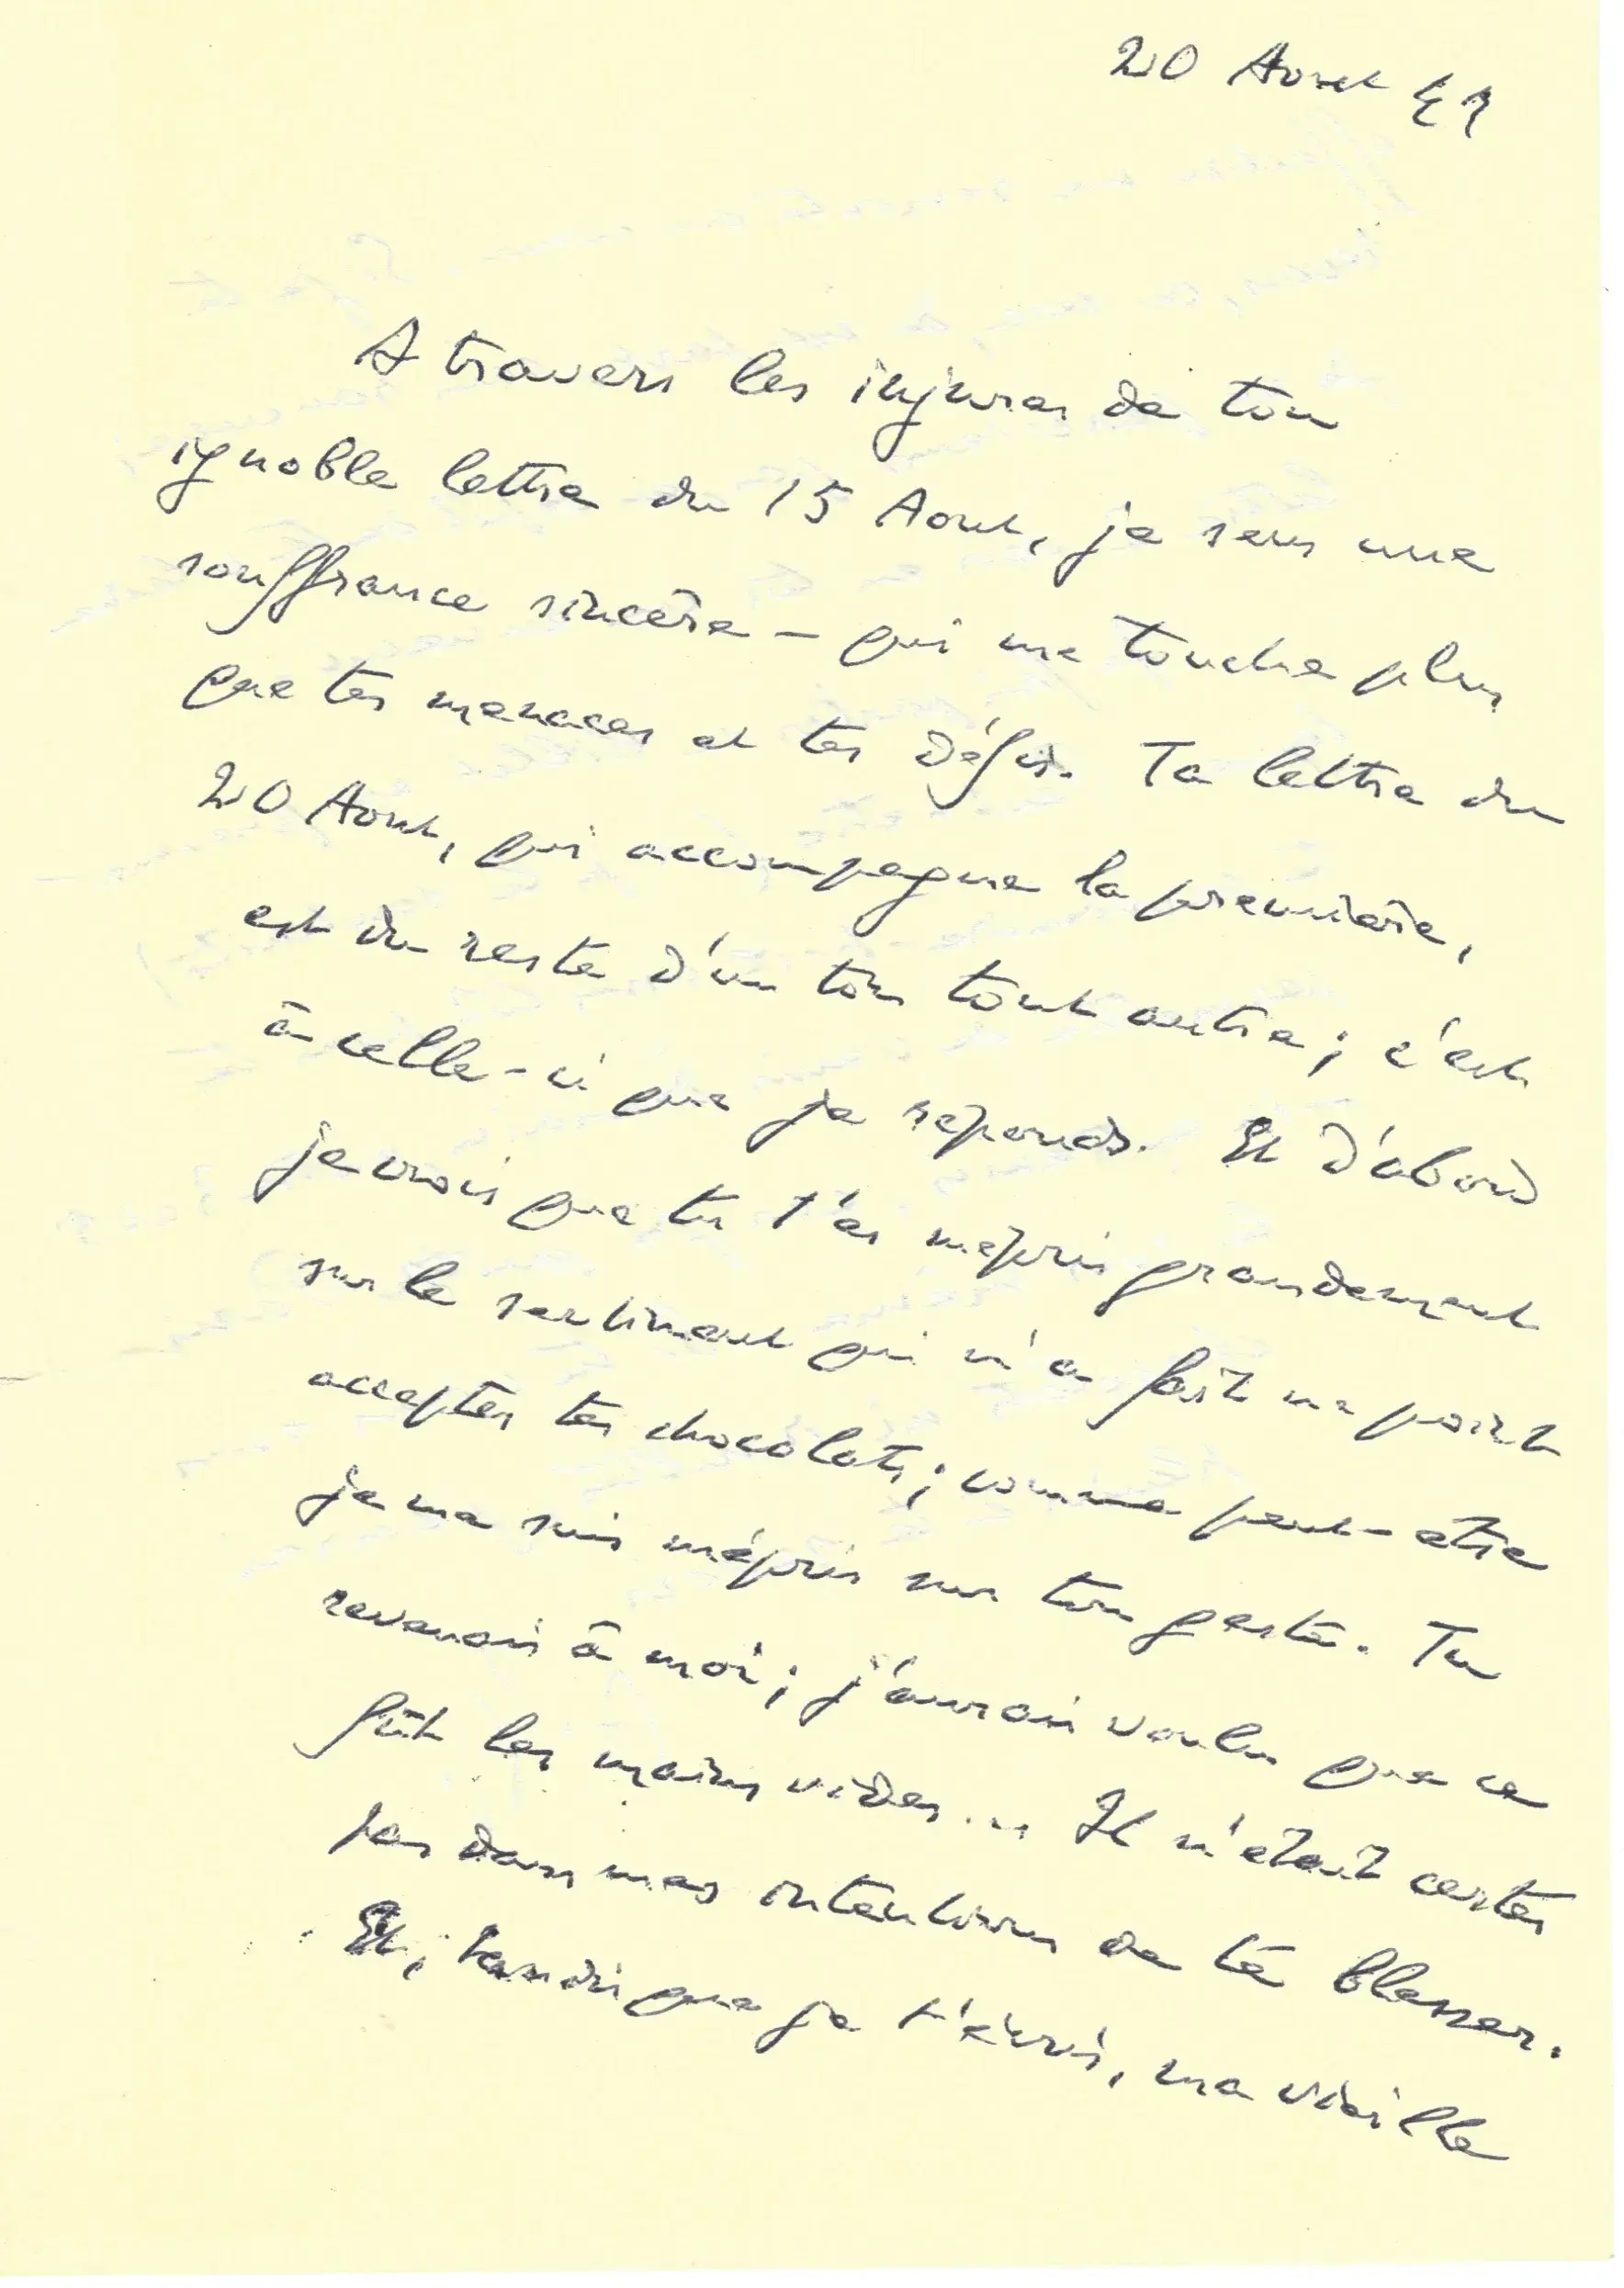 20 Aout 41
A travers les injures de ton
ignoble lettre du 15 Aout, je sens une
souffrance sincère – qui me touche plus
que tes menaces et tes défis. Ta lettre du
20 Aout, qui accompagne la première,
est du reste d'un ton tout autre ; c'est
à celle-ci que je reponds. Et d'abord
je crois que tu t'es mepris grandement
sur le sentiment qui m'a fait ne point
accepter tes chocolats ; comme peut-etre
je me suis mépris sur ton geste. Tu
revenais à moi ; j'aurais voulu que ce
fût les mains vides... Il n'etait certes
pas dans mes intentions de te blesser.
Et, tandis que je t'écris, ma vieille